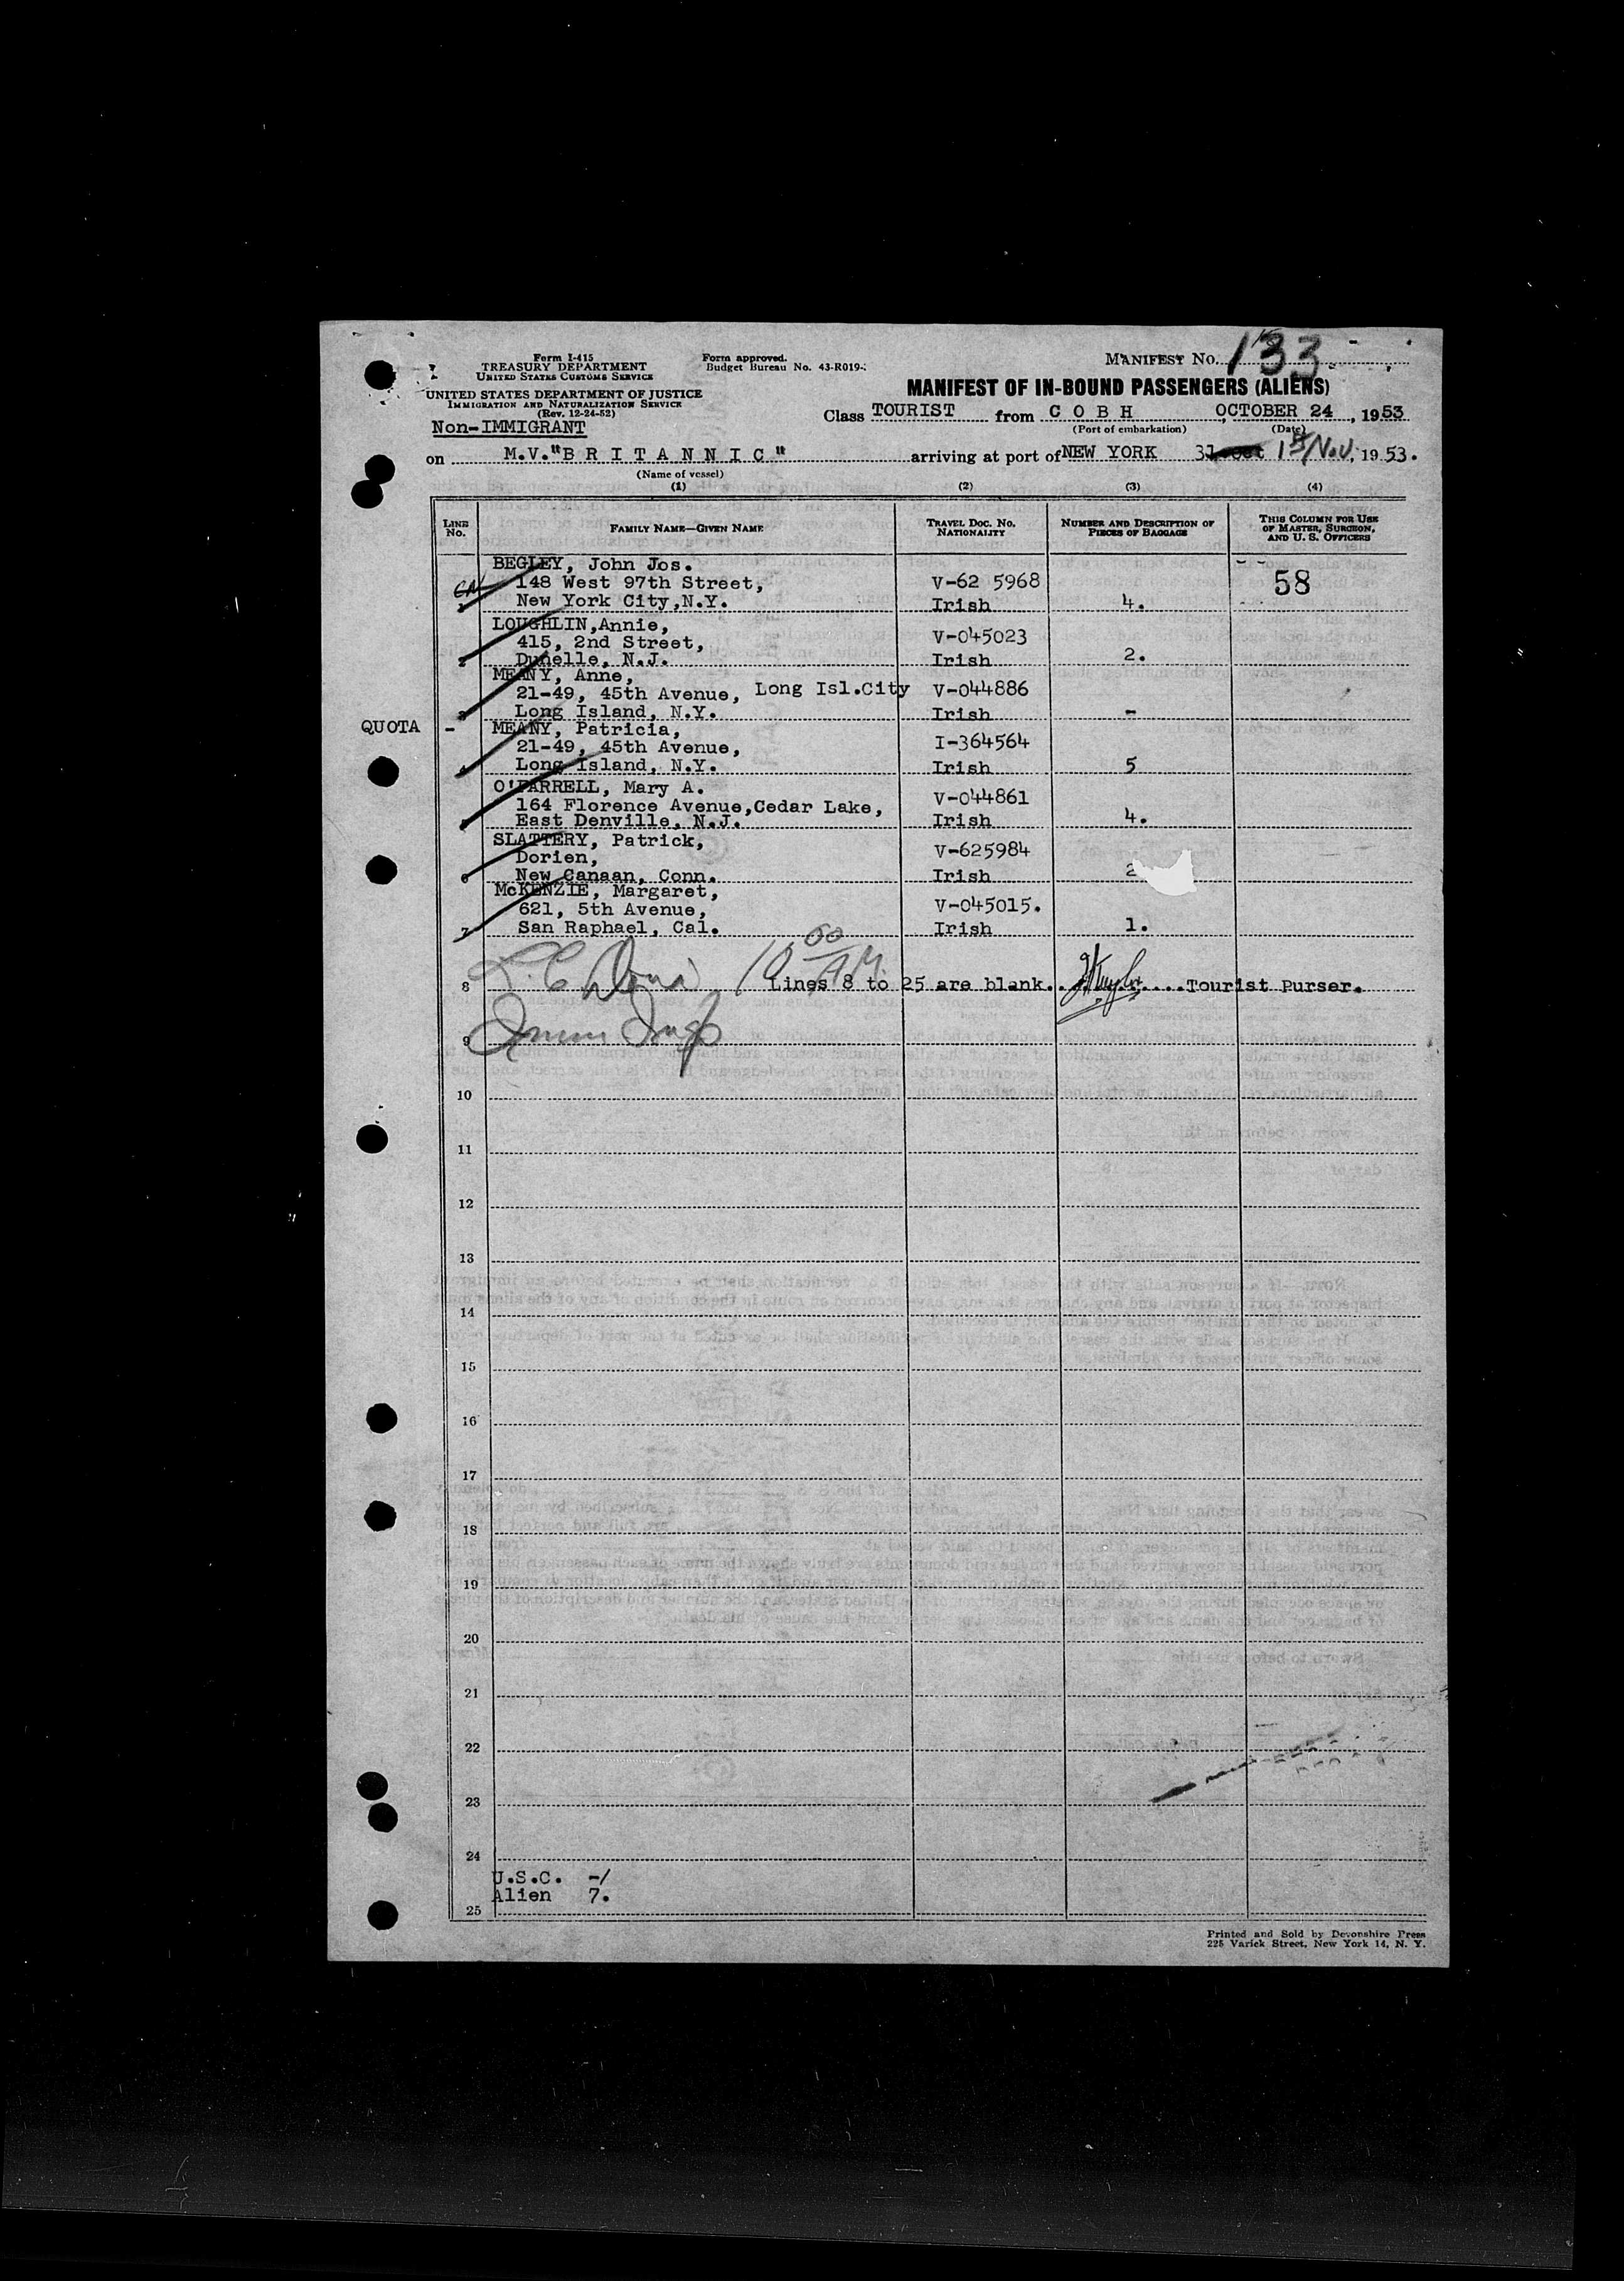 Form I-415
TREASURY DEPARTMENT
UNITED STATES CUSTOMS SERVICE
UNITED STATES DEPARTMENT OF JUSTICE
IMMIGRATION AND NATURALIZATION SERVICE
(Rev. 12-24-52)
Non-IMMIGRANT
Form approved.
Budget Bureau No. 43-R019-
MANIFEST No. 133
MANIFEST OF IN-BOUND PASSENGERS (ALIENS)
Class TOURIST from C O B H, OCTOBER 24, 1953
(Port of embarkation) (Date)
on M.V."B R I T A N N I C" arriving at port of NEW YORK 31 Oct 1st/Nov, 1953.
(Name of vessel)
(1) (2) (3) (4)
LINE No. FAMILY NAME—GIVEN NAME TRAVEL DOC. NO. NATIONALITY NUMBER AND DESCRIPTION OF PIECES OF BAGGAGE THIS COLUMN FOR USE OF MASTER, SURGEON, AND U. S. OFFICERS
BEGLEY, John Jos.
148 West 97th Street, V-62 5968 58
1 New York City,N.Y. Irish 4.
LOUGHLIN,Annie,
415, 2nd Street, V-045023
2 Dunelle, N.J. Irish 2.
MEANY, Anne,
21-49, 45th Avenue, Long Isl.City V-044886
3 Long Island, N.Y. Irish -
QUOTA - MEANY, Patricia,
21-49, 45th Avenue, I-364564
4 Long Island, N.Y. Irish 5
O'FARRELL, Mary A.
164 Florence Avenue,Cedar Lake, V-044861
5 East Denville, N.J. Irish 4.
SLATTERY, Patrick,
Dorien, V-625984
6 New Canaan, Conn. Irish 2
McKENZIE, Margaret,
621, 5th Avenue, V-045015.
7 San Raphael, Cal. Irish 1.
10 00 AM
8 Lines 8 to 25 are blank. Tourist Purser.
9
10
11
12
13
14
15
16
17
18
19
20
21
22
23
24
U.S.C. -/
Alien 7.
25
Printed and Sold by Devonshire Press
225 Varick Street, New York 14, N. Y.